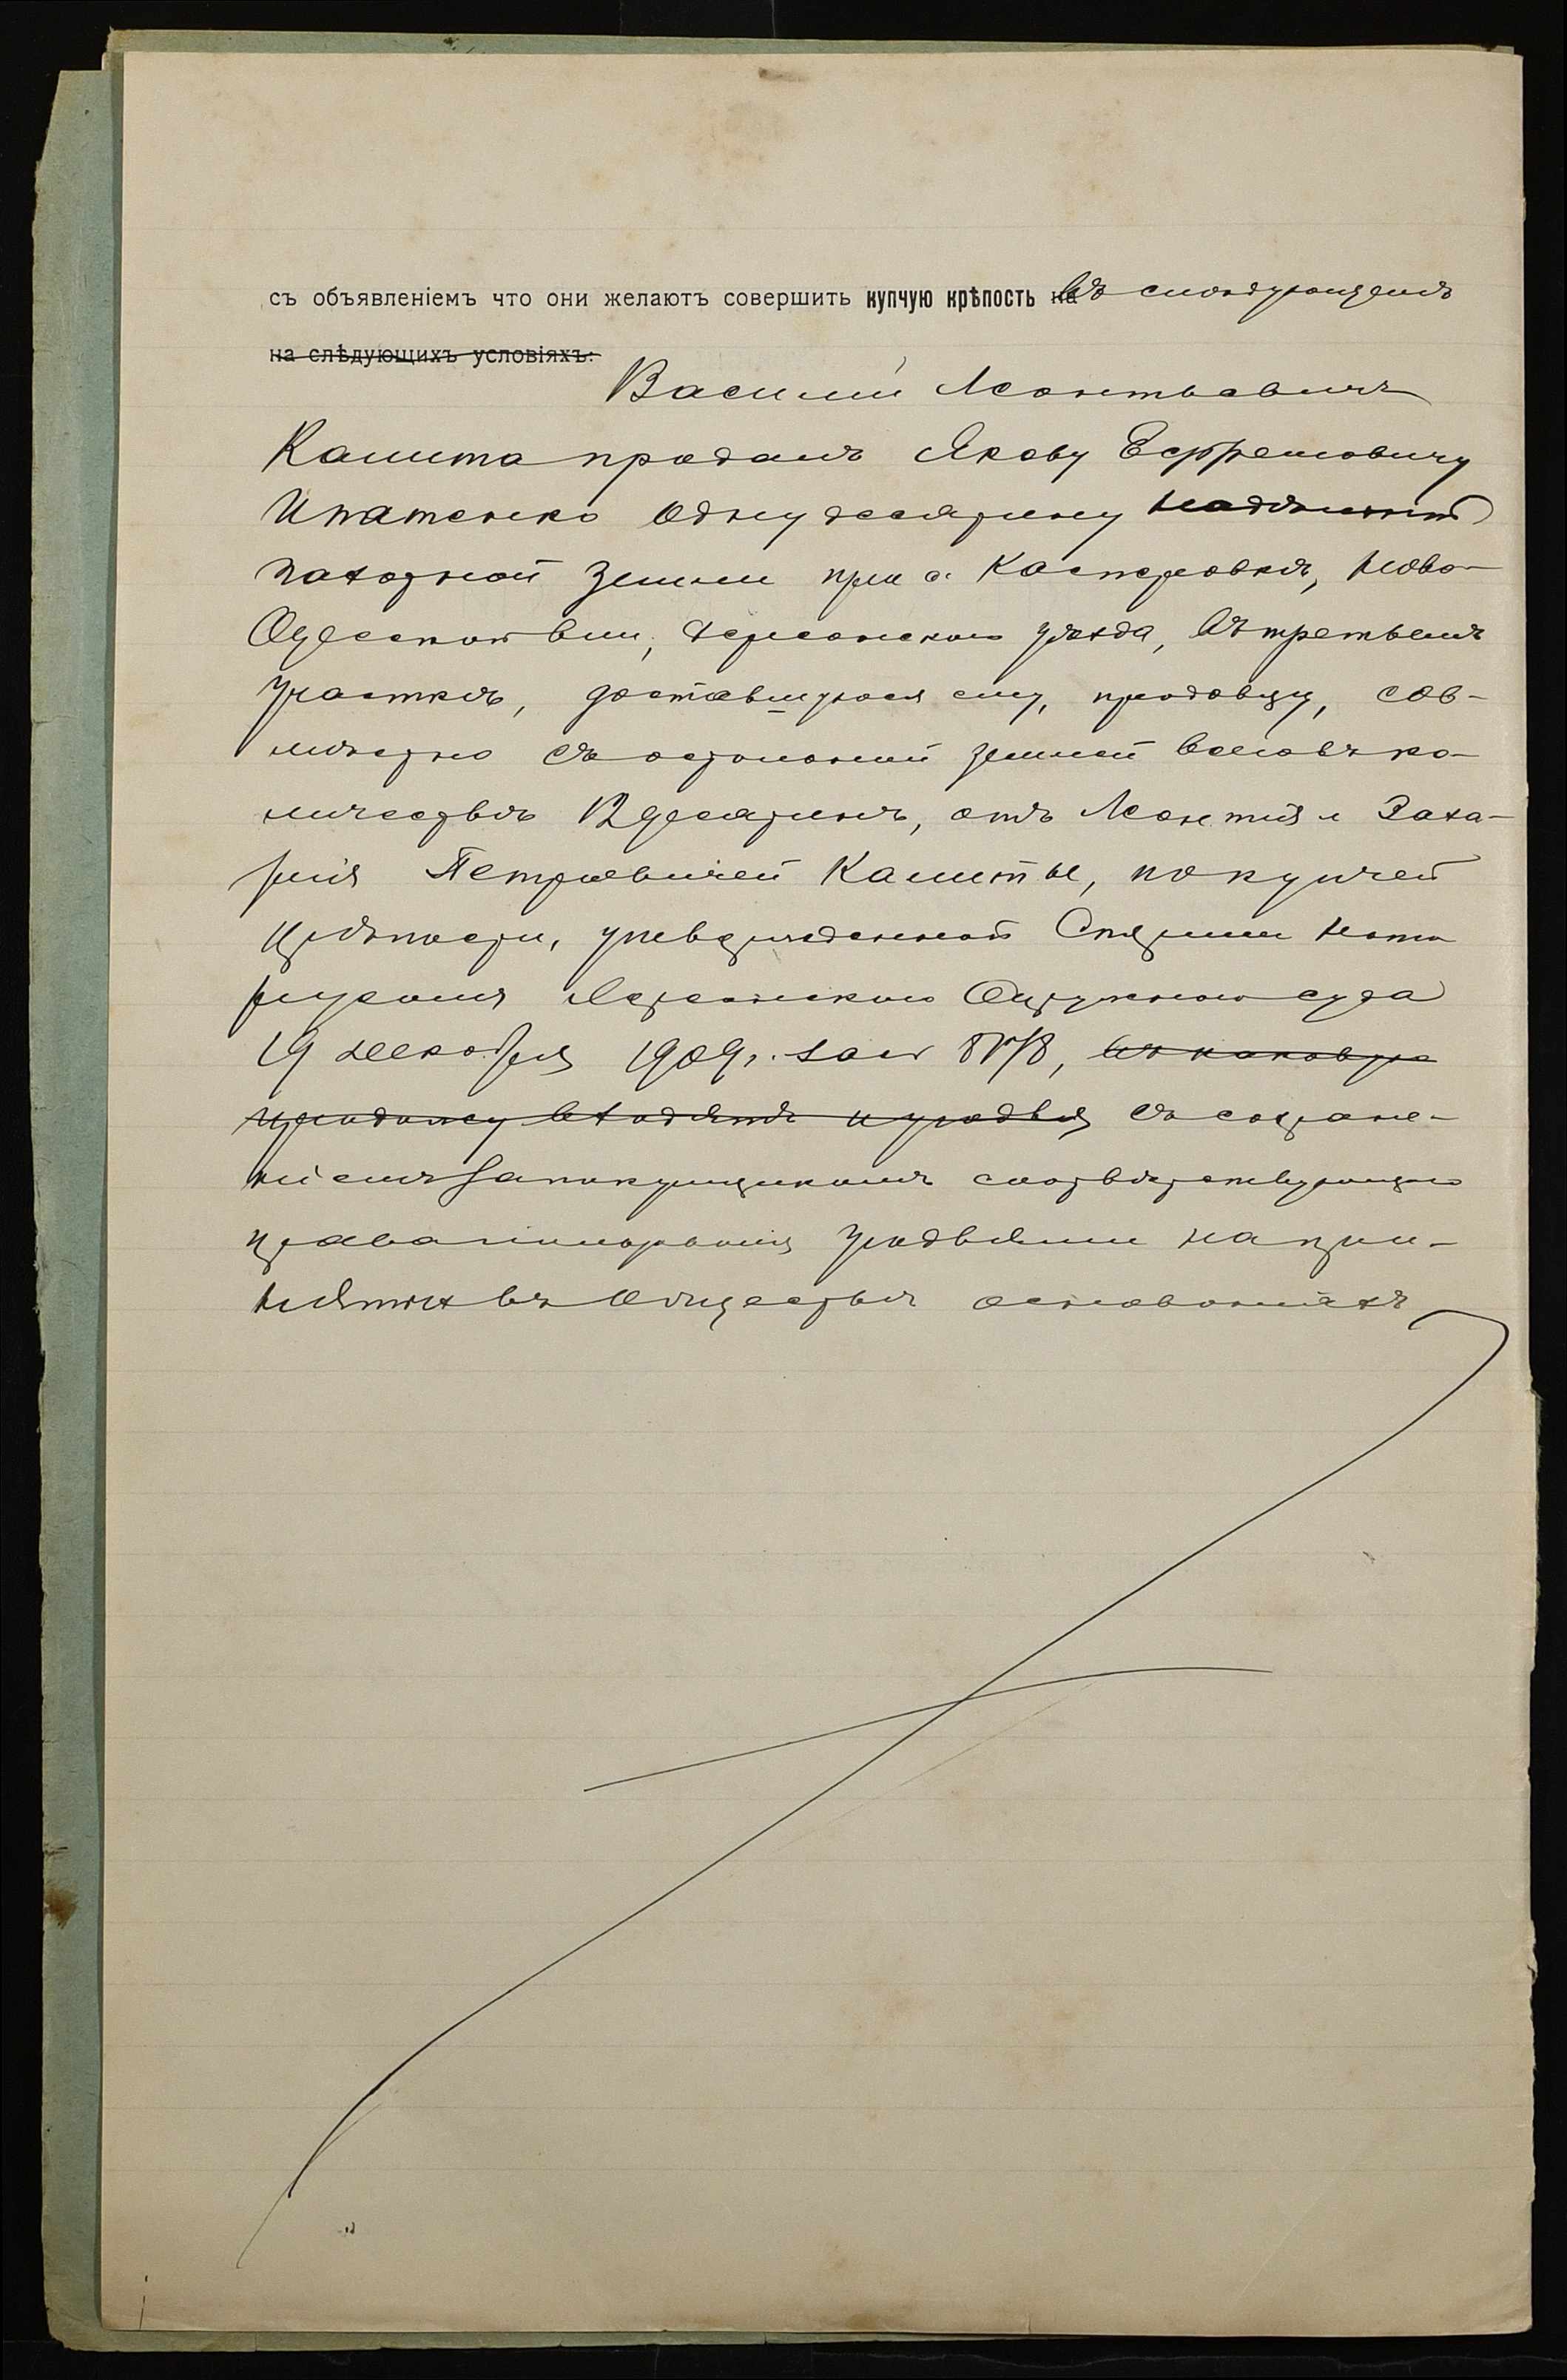 съ объявленіемъ что они желаютъ совершить купчую крѣпость на въ слѣдующемъ
на слѣдующихъ условіяхъ:
Василій Леонтьевичъ
Калита продалъ Якову Ефремовичу
Ипатенко одну десятину надѣльной
пахотной земли при с. Касперовкѣ, Ново-
Одесской вол., Херсонскаго уѣзда, въ третьемъ
участкѣ, доставшуюся ему, продавцу, сов-
мѣстно съ остальной землей всего въ ко-
личествѣ 12 десятинъ, отъ Леонтія и Заха-
рія Петровичей Калиты, по купчей
крѣпости, утвержденной Старшим Нота
ріусомъ Херсонскаго Окружнаго суда
19 декабря 1909 г. за №, въ каковую
продажу входятъ и угодья съ сохране-
ніемъ за покупщикомъ соотвѣтствующаго
права пользованія угодьями на прин-
нятых въ Обществѣ основаніяхъ